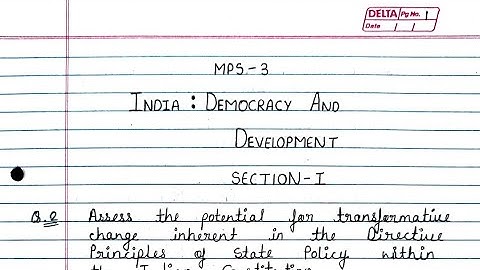 DELTA Pg No. 1
Date
MPS-3
INDIA : DEMOCRACY AND
DEVELOPMENT
SECTION-I
Q.2 Assess the potential for transformative
change inherent in the Directive
Principles of State Policy within
the Indian Constitution